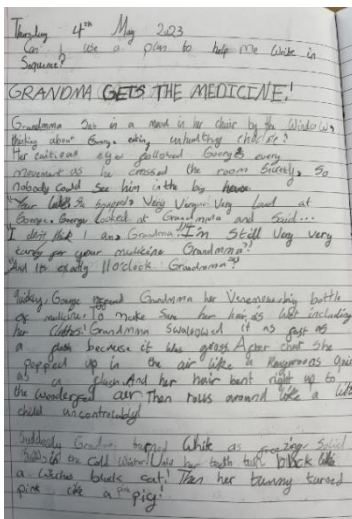 Thursday 4th May 2023
Can I use a plan to help me write in
Sequence?
GRANDMA GETS THE MEDICINE!
Grandmma Sat in a mood in her chair by the Window,
thinking about George, eating unhealthy
Her eyes followed George's every
movement as he crossed the room Sicretly, So
nobody could See him in the big house.
Very Very Very loud at
George. George looked at Grandmma and Said...
"I don't think I am, Grandma!" I'm Still Very Very
your medicine Grandmma?!
"And It's exactly 11 o'clock Grandmma"
George Grandmma her bottle
of medicine To make Sure her hair is including
her clothes! Grandmma Swalowed it as fast as
a because it was gross After that She
popped up in the air like a
as a flash And her hair bent right up to
the wonderful air Then rolls around like a little
child uncontrolably
Suddenly Grandma turned White as Solid
in the Cold Winter! Until her teeth turn black like
a witches black cat! Then her tummy turned
pink like a pink pig!